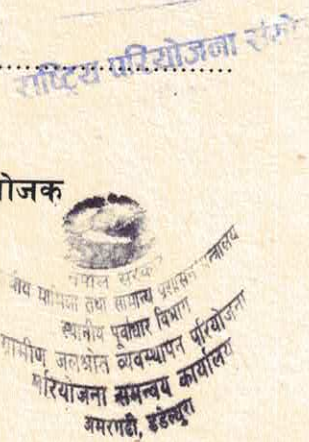 राष्ट्रिय परियोजना
योजक
नेपाल सरकार
मामिला तथा सामान्य प्रशासन मन्त्रालय
स्थानीय पूर्वाधार विभाग
ग्रामीण जलश्रोत व्यवस्थापन परियोजना
परियोजना समन्वय कार्यालय
अमरगढी, डडेल्धुरा